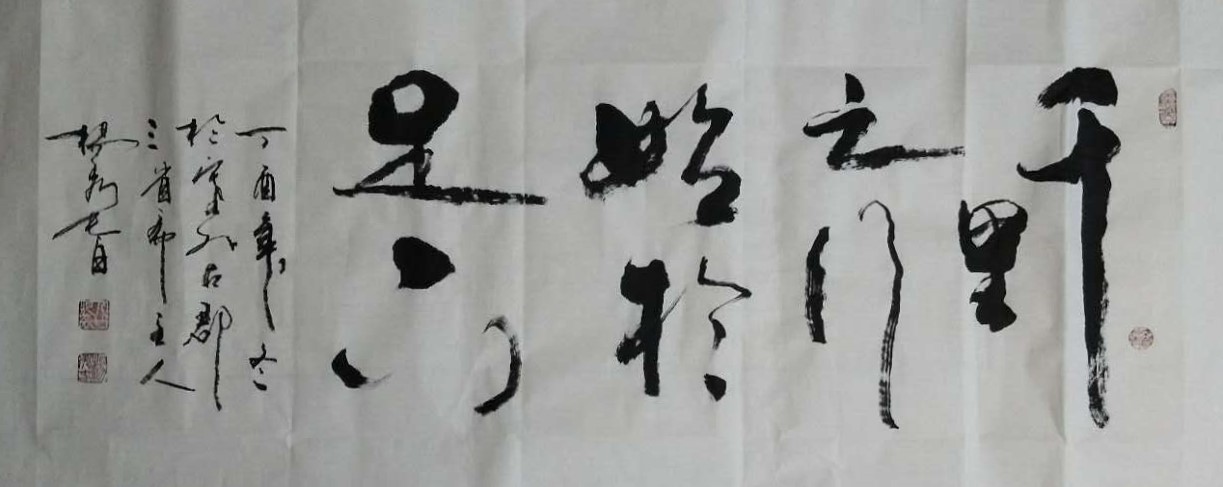 千里
之行
始於
足下
丁酉年冬
於寧外古郡
三省齋主人
楊